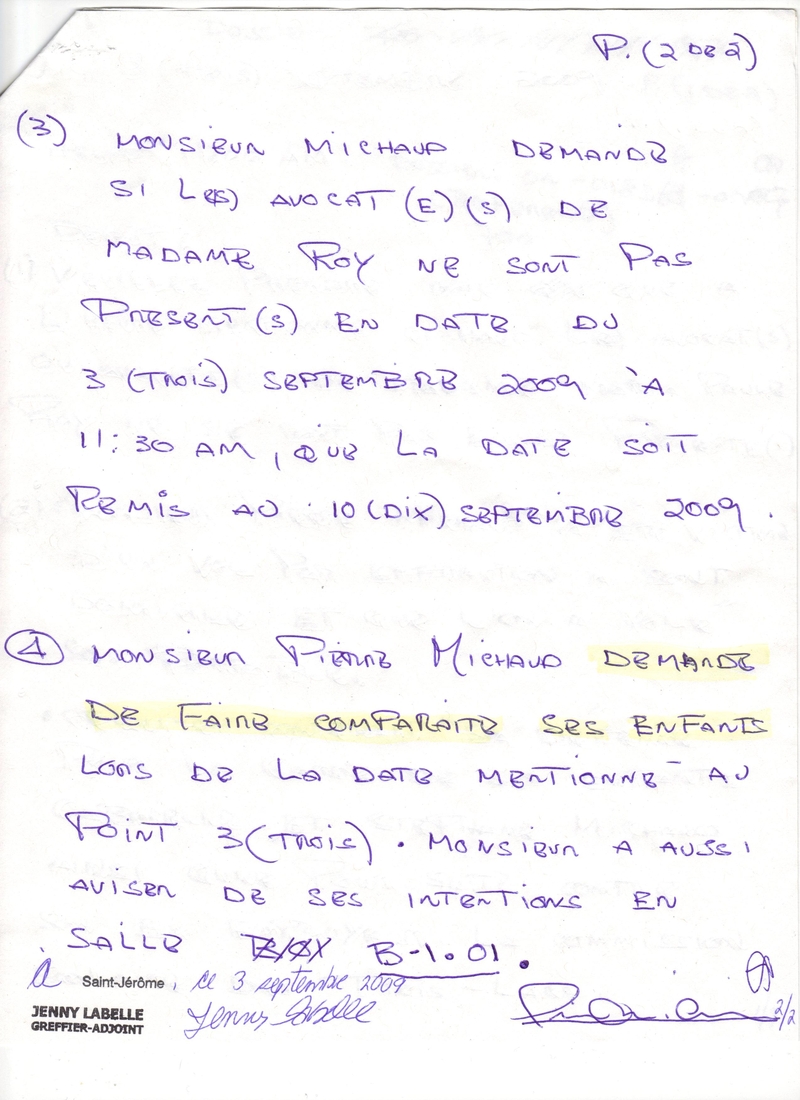 P. (2 DE 2)
(3) MONSIEUR MICHAUD DEMANDE
SI L(ES) AVOCAT(E)(S) DE
MADAME ROY NE SONT PAS
PRESENT(S) EN DATE DU
3 (TROIS) SEPTEMBRE 2009 À
11:30 AM, QUE LA DATE SOIT
REMIS AU 10 (DIX) SEPTEMBRE 2009.
4 MONSIEUR PIERRE MICHAUD DEMANDE
DE FAIRE COMPARAITE SES ENFANTS
LORS DE LA DATE MENTIONNE AU
POINT 3 (TROIS). MONSIEUR A AUSSI
AVISER DE SES INTENTIONS EN
SALLE B-1.01.
à Saint-Jérôme, le 3 septembre 2009
JENNY LABELLE Jenny Labelle
GREFFIER-ADJOINT
2/2